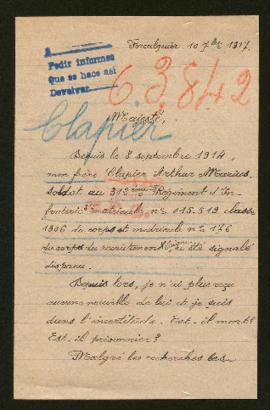 Forcalquier 10 7bre 1917.
A
Pedir informes
Que se hace asi
Devolver
63842
Majesté,
Clapier
Depuis le 8 septembre 1914,
mon frère Clapier Arthur Marius,
soldat au 312ème Régiment d'In-
fanterie matricule n° 015.519 classe
1906 du corps et matricule n° 176
du corps du recrutement a été signalé
disparu.
Depuis lors, je n'ai plus reçu
aucune nouvelle de lui et je suis
dans l'incertitude. Est-il mort?
Est-il prisonnier?
Malgré les recherches les